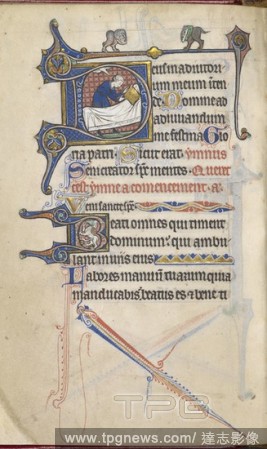 Deus in adiutori
um meum inten
de Domine ad
adiuuandum
me festina Glo
ria patri. Sicut erat. ymnus
Beati omnes qui timent
dominum: qui ambu
lant in uiis eius
Labores manuum tuarum quia
manducabis: beatus es & bene ti
TPG
www.tpgnews.com / 達志影像